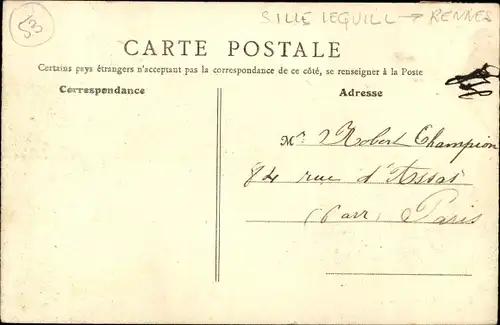 53
SILLE LEGUILL → RENNES
CARTE POSTALE
Certains pays étrangers n'acceptant pas la correspondance de ce côté, se renseigner à la Poste
Correspondance
Adresse
Mr Robert Champion
84 rue d'Assas
Paris